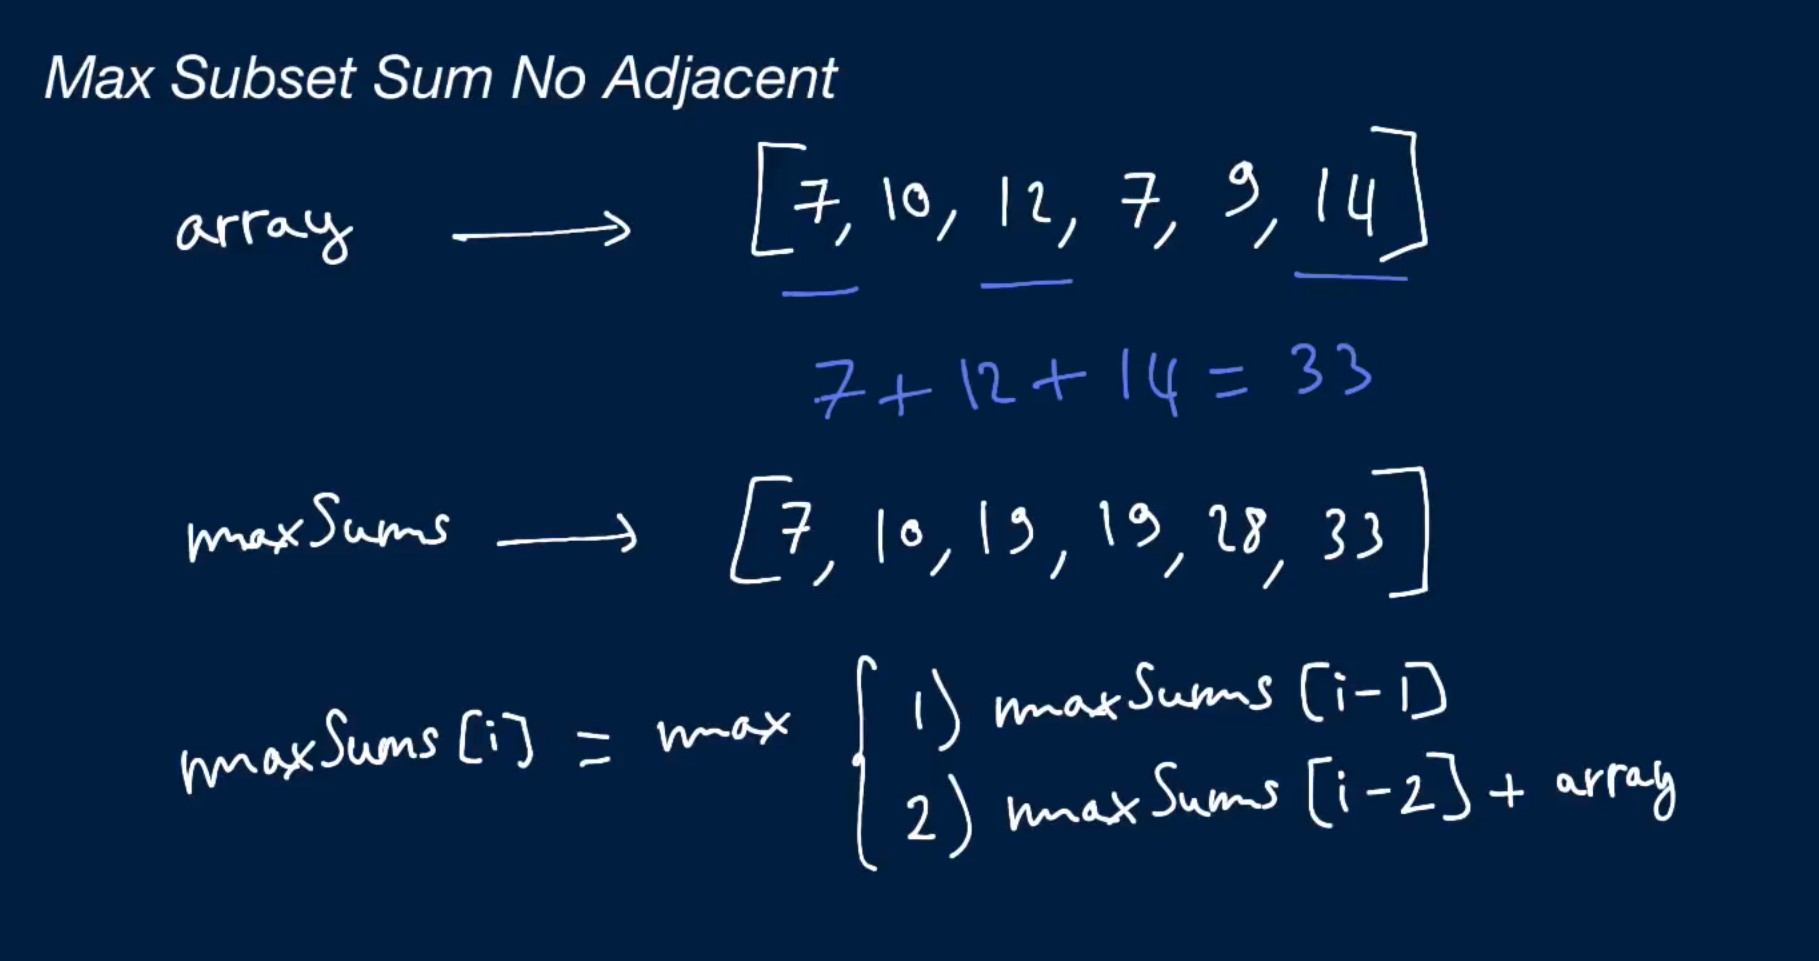 Max Subset Sum No Adjacent
array → [7, 10, 12, 7, 9, 14]
7 + 12 + 14 = 33
maxSums → [7, 10, 19, 19, 28, 33]
maxSums [i] = max { 1) maxSums [i-1]
2) maxSums [i-2] + array